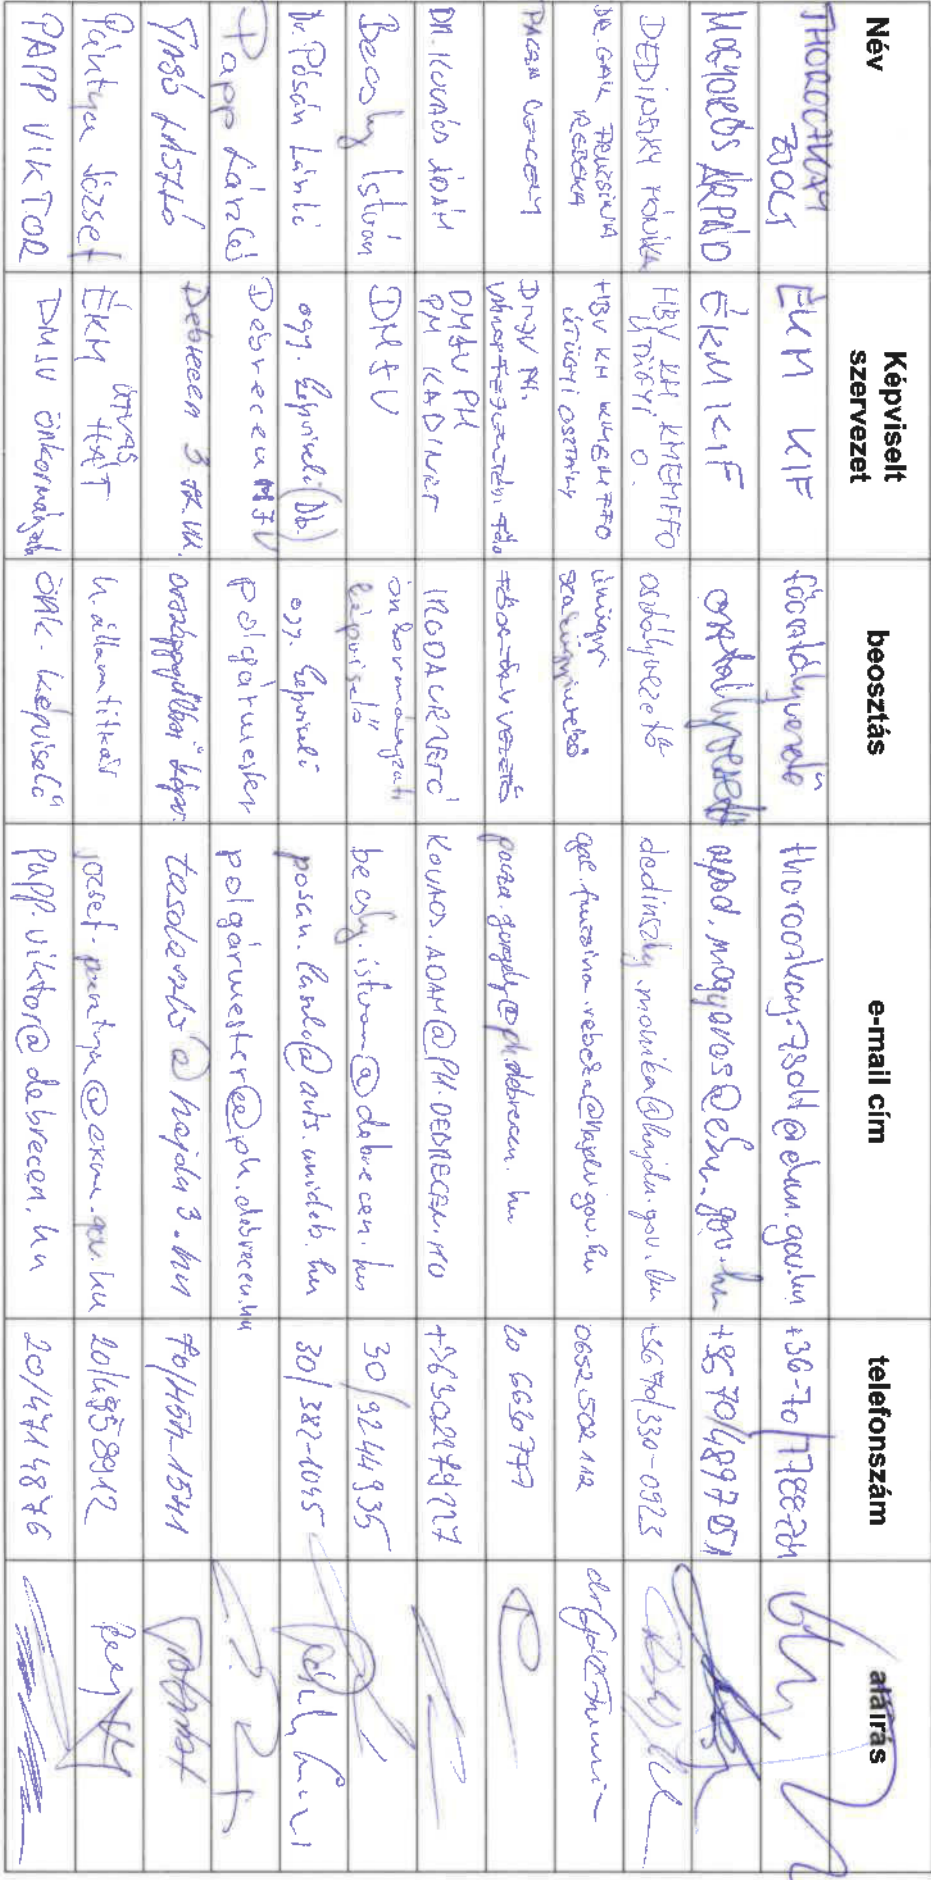 Név Képviselt szervezet beosztás e-mail cím telefonszám aláírás
THOROCZKAY ZSOLT ÉKM KIF főosztályvezető thoroczkay.zsolt@ekm.gov.hu
MAGYAROS ÁRPÁD ÉKM KIF osztályvezető arpad.magyaros@ekm.gov.hu +36 70/4897051
DEDINSZKY MÓNIKA HBV KH KMEMFFO ÚTÜGYI O. osztályvezető dedinszky.monika@hajdu.gov.hu +3670/330-0923
DR. GÁL FRUZSINA REBEKA HBV KH KMEMFFO ÚTÜGYI OSZTÁLY útügyi szakügyintéző gal.fruzsina.rebeka@hajdu.gov.hu 0652 502 112
GERGELY DMJV PH. pazsa.gergely@ph.debrecen.hu 20 6630779
DR. KOVÁCS ÁDÁM DMJV PH PM KABINET IRODAVEZETŐ KOVACS.ADAM@PH.DEBRECEN.HU
Becsky István DMJV önkormányzati képviselő becsky.istvan@debrecen.hu 30/9244935
Dr. Pósán László ogy. képviselő (Db.) ogy. képviselő posan.laszlo@arts.unideb.hu 30/382-1045
Papp László Debrecen MJV polgármester polgarmester@ph.debrecen.hu
TASÓ LÁSZLÓ Debrecen 3. országgyűlési képv. tasolaszlo@hajdu3.hu
Pántya József ÉKM h. államtitkár jozsef.pantya@ekm.gov.hu 20/4858912
PAPP VIKTOR DMJV önkormányzata ÖNK. képviselő papp.viktor@debrecen.hu 20/4714876